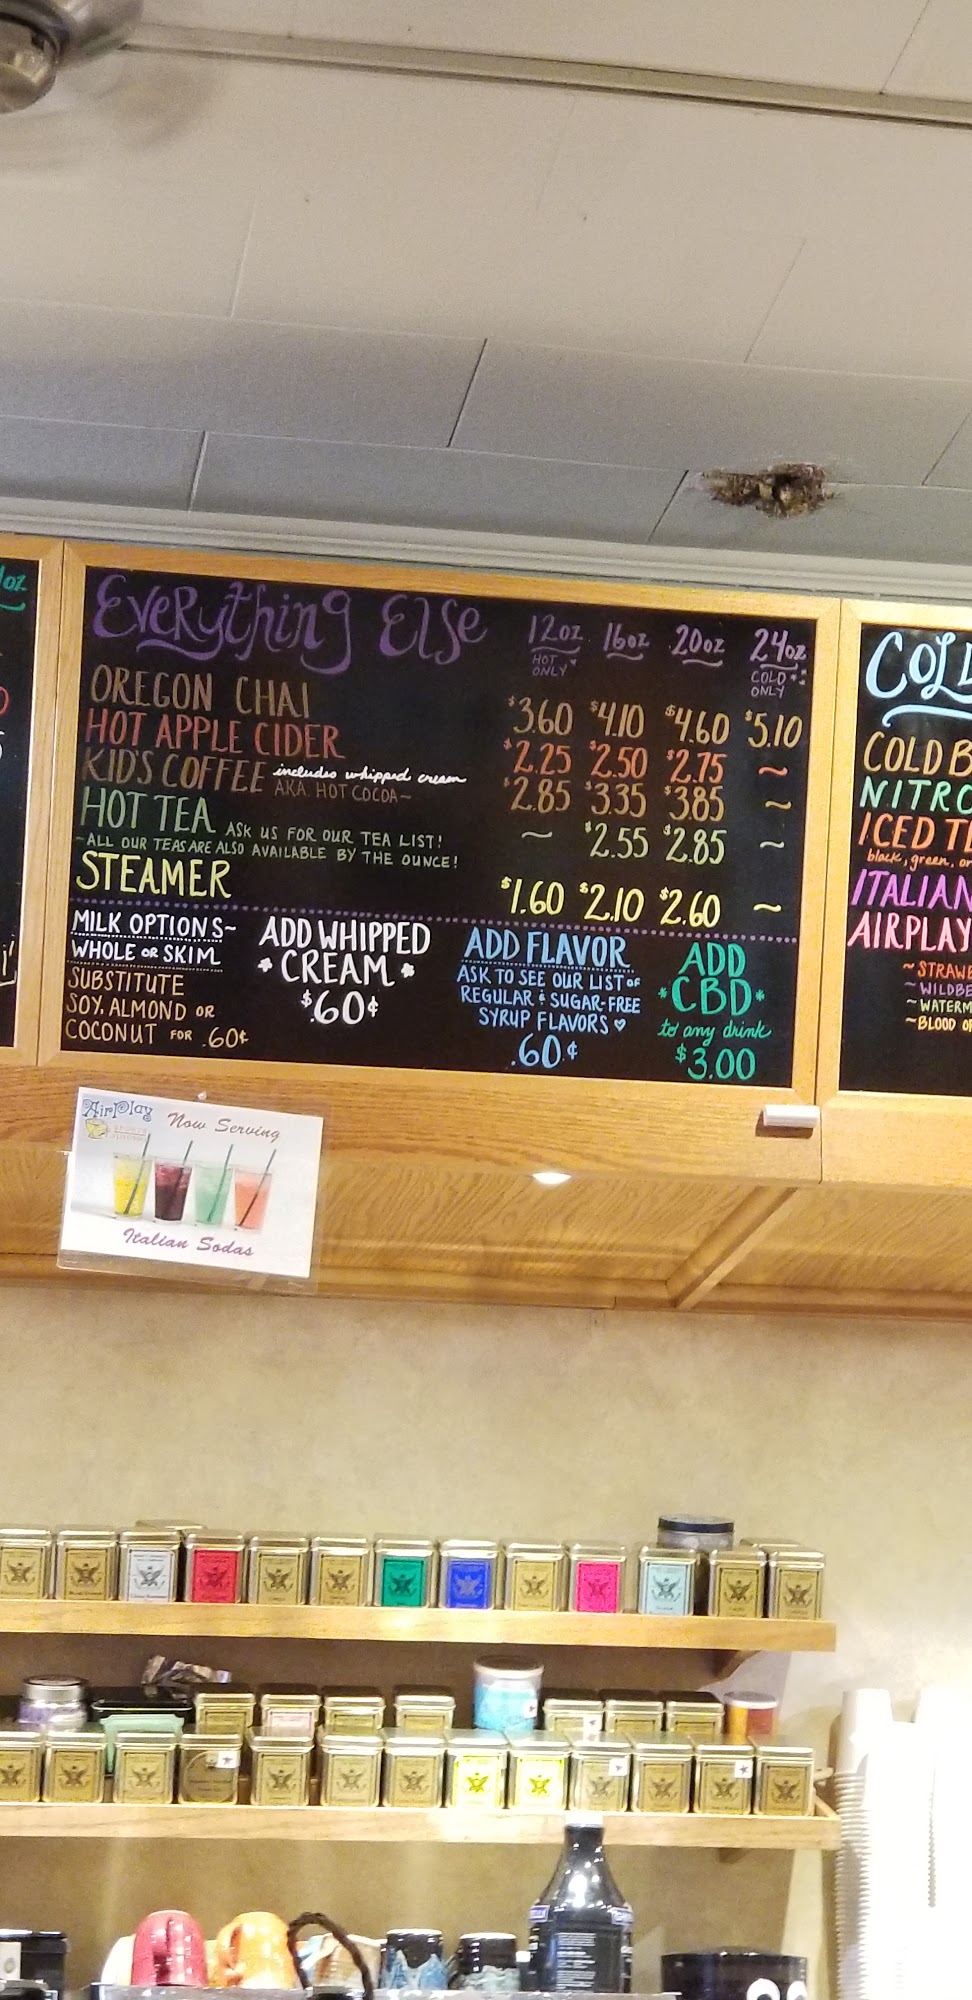 Everything Else
12oz 16oz 20oz 24oz
HOT ONLY
COLD ONLY
OREGON CHAI $3.60 $4.10 $4.60 $5.10
HOT APPLE CIDER $2.25 $2.50 $2.75 ~
KID'S COFFEE includes whipped cream
AKA. HOT COCOA~ $2.85 $3.35 $3.85 ~
HOT TEA ASK US FOR OUR TEA LIST! ~ $2.55 $2.85 ~
~ALL OUR TEAS ARE ALSO AVAILABLE BY THE OUNCE!
STEAMER $1.60 $2.10 $2.60 ~
MILK OPTIONS~
WHOLE OR SKIM
SUBSTITUTE
SOY, ALMOND OR
COCONUT FOR .60¢
ADD WHIPPED
CREAM
$.60¢
ADD FLAVOR
ASK TO SEE OUR LIST OF
REGULAR & SUGAR-FREE
SYRUP FLAVORS
.60¢
ADD
CBD
to any drink
$3.00
COLD B
NITRO
ICED TE
black, green, or
ITALIAN
AIRPLAY
~STRAWB
~WILDBE
~WATERM
~BLOOD OR
AirPlay
Now Serving
Italian Sodas